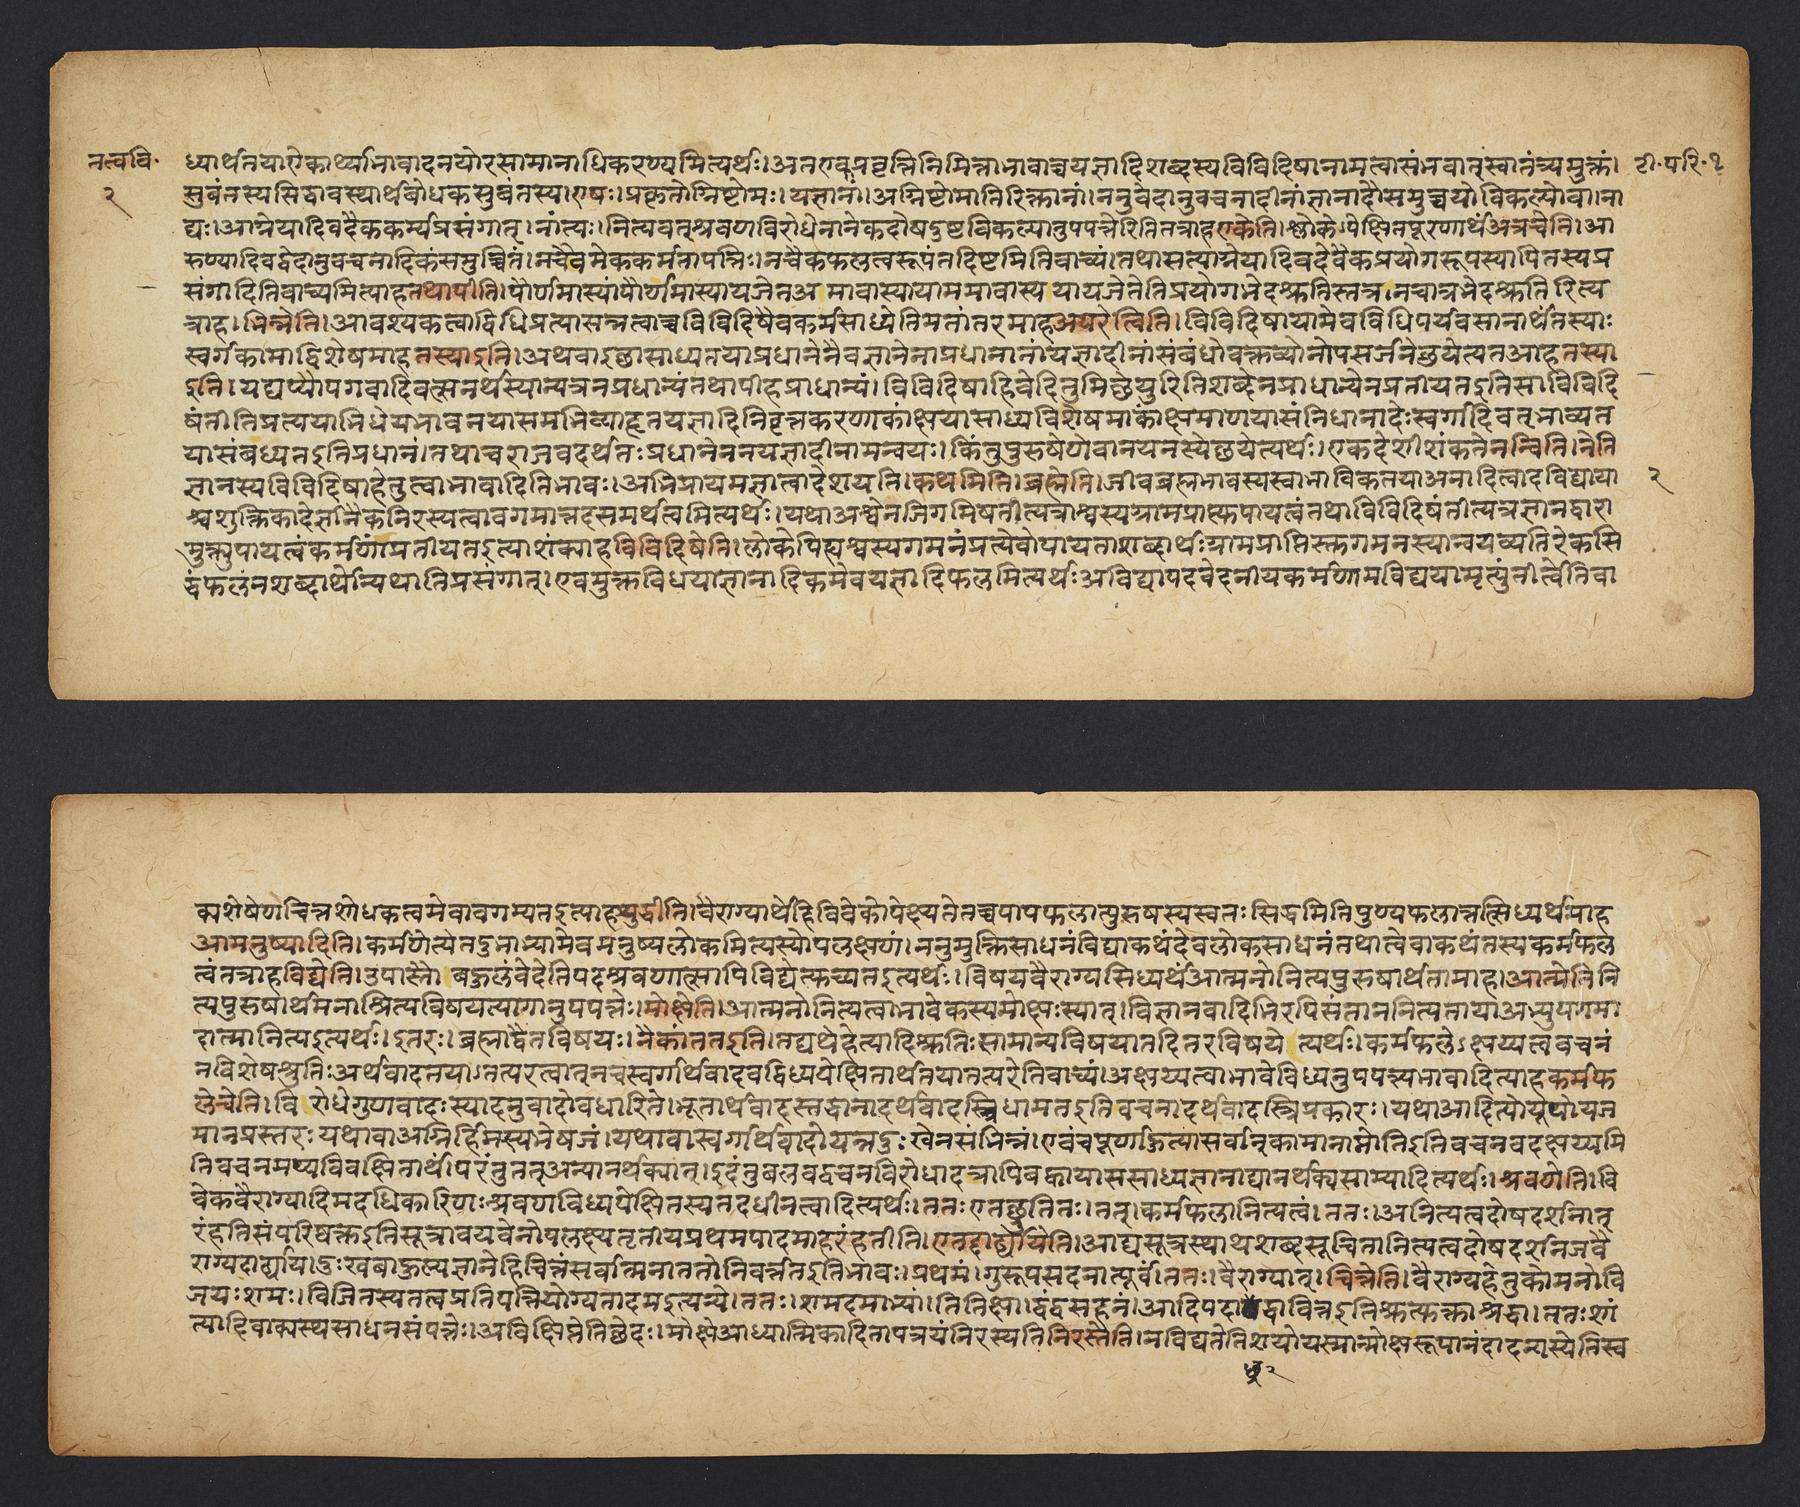 तत्ववि॰
२
टी॰परि॰१
ध्यार्थतयाऐकार्थ्याभावादनयोरसामानाधिकरण्यमित्यर्थः।अतएवप्रवृत्तिनिमित्ताभावाच्चयज्ञादिशब्दस्यविविदिषानामत्वासंभवात्स्वातंत्र्यमुक्तं।
सुबंतस्यसिद्धावस्थार्थबोधकसुबंतस्य।एषः।प्रकृतोग्निष्टोमः।यज्ञानां।अग्निष्टोमातिरिक्तानां।ननुवेदानुवचनादीनांज्ञानादौसमुच्चयोविकल्पोवा।ना
द्यः।आग्नेयादिवदैककर्म्यप्रसंगात्।नांत्यः।नित्यवत्श्रवणविरोधेनानेकदोषदुष्टविकल्पानुपपत्तेरितितत्राहएकेति।श्लोकेपेक्षितपूरणार्थंअत्रचेति।आ
रुण्यादिवद्वेदानुवचनादिकंसमुच्चितं।नचैवमेककर्मतापत्तिः।नचैकफलत्वरूपंतदिष्टमितिवाच्यं।तथासत्याग्नेयादिवदेवैकप्रयोगरूपस्यापितस्यप्र
संगादितिवाच्यमित्याहतथापीति।पौर्णमास्यांपौर्णमास्यायजेतअमावास्यायाममावास्ययायजेतेतिप्रयोगभेदश्रुतिस्तत्र।नचात्रभेदश्रुतिरित्य
त्राह।भिन्नेति।आवश्यकत्वाद्विधिप्रत्यासन्नत्वाच्चविविदिषैवकर्मसाध्येतिमतांतरमाहअपरेत्विति।विविदिषायामेवविधिपर्यवसानार्थंतस्याः
स्वर्गकामाद्विशेषमाहतस्याइति।अथवाइच्छासाध्यतयाप्रधानेनैवज्ञानेनाप्रधानानांयज्ञादीनांसंबंधोवक्तव्योनोपसर्जनेच्छयेत्यतआहतस्या
इति।यद्यप्यौपगवादिवत्सनर्थस्यान्यत्रनप्रधान्यंतथापीहप्राधान्यं।विविदिषाहिवेदितुमिच्छेयुरितिशब्देनप्राधान्येनप्रतीयतइतिसाविविदि
षंतीतिप्रत्ययाभिधेयभावनयासमभिव्याहृतयज्ञादिनिवृत्तकरणकांक्षयासाध्यविशेषमाकांक्षमाणयासंनिधानादेःस्वर्गादिवत्भाव्यत
यासंबध्यतइतिप्रधानं।तथाचराजवदर्थतःप्रधानेननयज्ञादीनामन्वयः।किंतुपुरुषेणेवानयनस्येच्छयेत्यर्थः।एकदेशीशंकतेनन्विति।नेति
ज्ञानस्यविविदिषाहेतुत्वाभावादितिभावः।अभिप्रायमज्ञात्वादेशयति।कथमिति।ब्रह्मेति।जीवब्रह्मभावस्यस्वाभाविकतयाअनादित्वादविद्याया
२
श्चशुक्तिकादेर्ज्ञानैकनिरस्यत्वावगमान्नदसमर्थत्वमित्यर्थः।यथाअश्वेनजिगमिषतीत्यत्राश्वस्यग्रामप्राप्त्युपायत्वंतथाविविदिषंतीत्यत्रज्ञानद्वारा
मुक्त्युपायत्वंकर्मणांप्रतीयतइत्याशंक्याहविविदिषेति।लोकेपिह्यश्वस्यगमनंप्रत्येवोपायताशब्दार्थःग्रामप्राप्तिस्तुगमनस्यान्वयव्यतिरेकसि
द्धंफलंनशब्दार्थोन्यथातिप्रसंगात्।एवमुक्तविधयाज्ञानादिकमेवयज्ञादिफलमित्यर्थःअविद्यापदवेदनीयकर्मणामविद्ययामृत्युंतीर्त्वेतिवा
क्यशेषेणचित्तशोधकत्वमेवावगम्यतइत्याहशुद्धीति।वैराग्यार्थेहिविवेकोपेक्ष्यतेतच्चपापफलात्पुरुषस्यस्वतःसिद्धमितिपुण्यफलात्तत्सिध्यर्थमाह
आमनुष्यादिति।कर्मणेत्येतदुभाभ्यामेवमनुष्यलोकमित्यस्योपलक्षणं।ननुमुक्तिसाधनंविद्याकथंदेवलोकसाधनंतथात्वेवाकथंतस्यकर्मफल
त्वंतत्राहविद्येति।उपास्तौबहुलंवेदेतिपदश्रवणात्सापिविद्येत्युच्यतइत्यर्थः।विषयवैराग्यसिध्यर्थंआत्मनोनित्यपुरुषार्थतामाह।आत्मेतिनि
त्यपुरुषार्थमनाश्रित्यविषयत्यागानुपपत्तेः।मोक्षेति।आत्मनोनित्यत्वाभावेकस्यमोक्षःस्यात्।विज्ञानवादिभिरपिसंताननित्यतायाअभ्युपगमा
दात्मानित्यइत्यर्थः।इतरः।ब्रह्माद्वैतविषयः।नैकांततइति।तद्यथेहेत्यादिश्रुतिःसामान्यविषयातदितरविषयेत्यर्थः।कर्मफलेऽक्षय्यत्ववचनं
नविशेषश्रुतिःअर्थवादतयातत्परत्वात्नचस्वर्गार्थवादवद्विध्यपेक्षितार्थतयातत्परेतिवाच्यं।अक्षय्यत्वाभावेविध्यनुपपत्त्यभावादित्याहकर्मफ
लेचेति।विरोधेगुणवादःस्यादनुवादोवधारिते।भूतार्थवादस्तद्धानादर्थवादस्त्रिधामतइतिवचनादर्थवादस्त्रिप्रकारः।यथाआदित्योयूपोयज
मानप्रस्तरःयथावाअग्निर्हिमस्यभेषजं।यथावास्वर्गार्थवादोयन्नदुःखेनसंभिन्नं।एवंचपूर्णाहुत्यासर्वान्कामानाप्नोतिइतिवचनवदक्षय्यमि
तिवचनमप्यविवक्षितार्थं।परंतुततुअन्यानर्थक्यात्।इदंतुबलवद्वचनविरोधादत्रापिवह्वायाससाध्यज्ञानाद्यानर्थक्यसाम्यादित्यर्थः।श्रवणेति।वि
वेकवैराग्यादिमदधिकारिणःश्रवणविध्यपेक्षितस्यतदधीनत्वादित्यर्थः।ततःएतच्छ्रुतितः।तत्।कर्मफलानित्यत्वं।ततः।अनित्यत्वदोषदर्शनात्
रंहतिसंपरिष्वक्तइतिसूत्रावयवेनोपलक्ष्यतृतीयप्रथमपादमाहरंहतीति।एतद्दार्ढ्यायेति।आद्यसूत्रस्थाथशब्दसूचितानित्यत्वदोषदर्शनजवै
राग्यदार्ढ्याय।दुःखबाहुल्यज्ञानेहिचित्तंसर्वात्मनाततोनिवर्त्ततइतिभावः।प्रथमं।गुरूपसदनात्पूर्वं।ततः।वैराग्यात्।चित्तेति।वैराग्यहेतुकोमनोवि
जयःशमः।विजितस्यतत्वप्रतिपत्तियोग्यतादमइत्यन्ये।ततः।शमदमाभ्यां।तितिक्षा।द्वंद्वसहनं।आदिपदाच्छ्रद्धावित्तइतिश्रुत्युक्ताश्रद्धा।ततःशां
त्यादिवाक्यस्थसाधनसंपत्तेः।अविक्षिप्तेतिच्छेदः।मोक्षेआध्यात्मिकादितापत्रयंनिरस्यतिनिरस्तेति।नविद्यतेतिशयोयस्मान्मोक्षरूपानंदादन्यस्येतिस्व